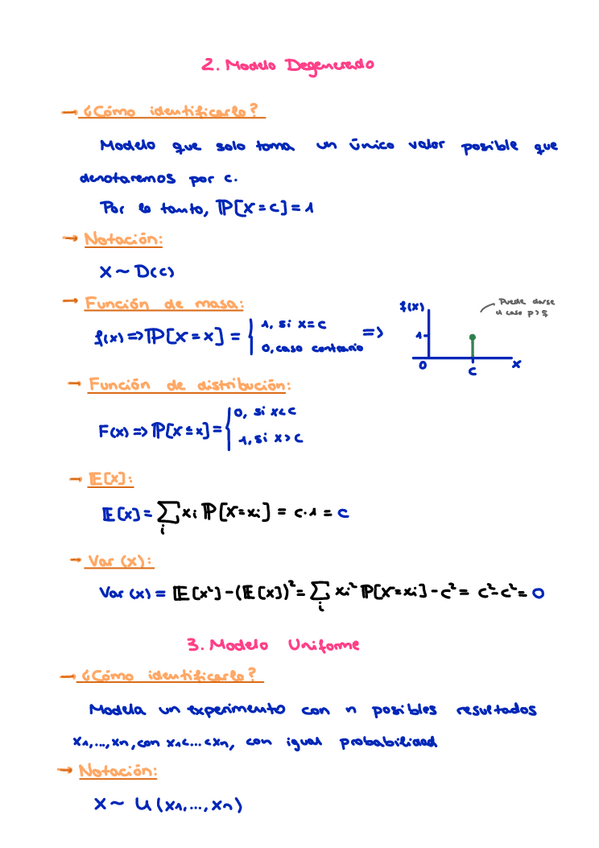 2. Modelo Degenerado
→ ¿Cómo identificarlo?
Modelo que solo toma un único valor posible que
denotaremos por c.
Por lo tanto, ℙ[X=c]=1
→ Notación:
X ~ D(c)
→ Función de masa:
f(x) => ℙ[X=x] = { 1, si x=c
0, caso contrario =>
f(x)
Puede darse
el caso
1
0 c x
→ Función de distribución:
F(x) => ℙ[X≤x] = { 0, si x<c
1, si x>c
→ 𝔼[X]:
𝔼[X] = ∑i xi ℙ[X=xi] = c·1 = c
→ Var (x):
Var (x) = 𝔼[X²]-(𝔼[X])² = ∑i xi² ℙ[X=xi] - c² = c²-c² = 0
3. Modelo Uniforme
→ ¿Cómo identificarlo?
Modela un experimento con n posibles resultados
x1,...,xn, con x1<...<xn, con igual probabilidad
→ Notación:
X ~ U(x1,...,xn)